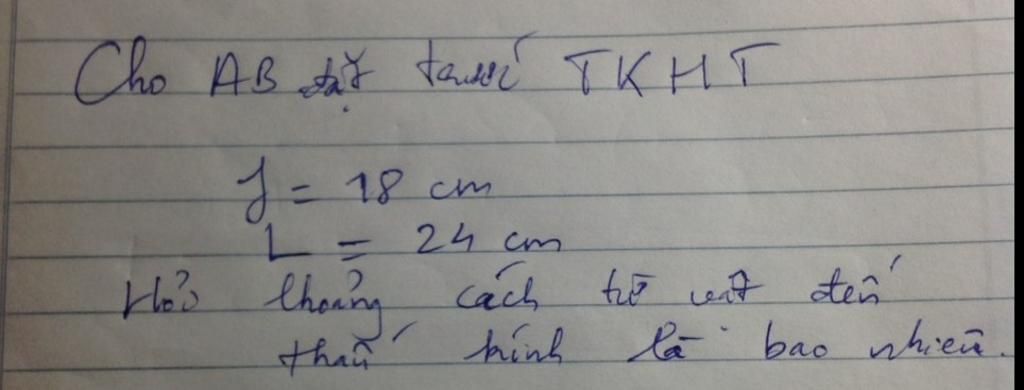 Cho AB đặt trước TKHT
f = 18 cm
L = 24 cm
Hỏi khoảng cách từ vật đến
thấu kính là bao nhiêu.